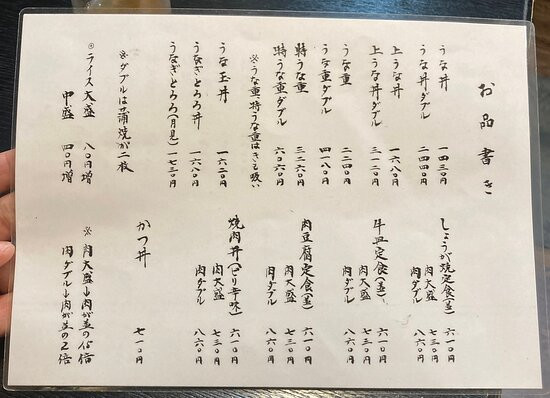 お品書き
うな丼 一四三〇円
うな丼ダブル 二四四〇円
上うな丼 一六八〇円
上うな丼ダブル 三一二〇円
うな重 二二四〇円
うな重ダブル 四一八〇円
特うな重 三二六〇円
特うな重ダブル 六〇六〇円
※うな重、特うな重はきも吸い
うな玉丼 一六二〇円
うなぎとろろ丼 一六八〇円
うなぎとろろ(月見) 一七三〇円
※ダブルは蒲焼が二枚
◎ライス大盛 八〇円増
中盛 四〇円増
しょうが焼定食(並) 六一〇円
肉大盛 七三〇円
肉ダブル 八六〇円
牛皿定食(並) 六一〇円
肉大盛 七三〇円
肉ダブル 八六〇円
肉豆腐定食(並) 六一〇円
肉大盛 七三〇円
肉ダブル 八六〇円
焼肉丼(ピリ辛味) 六一〇円
肉大盛 七三〇円
肉ダブル 八六〇円
かつ丼 七一〇円
※肉大盛→肉が並の1.5倍
肉ダブル→肉が並の2倍